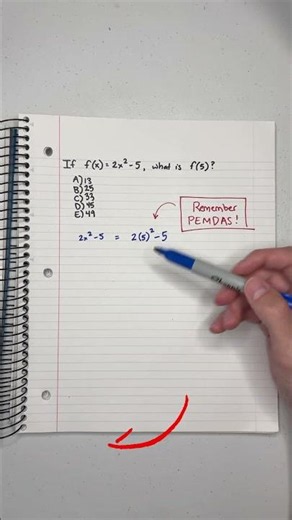 If f(x) = 2x² - 5, what is f(5)?
A) 13
B) 25
C) 33
D) 45
E) 49
Remember
PEMDAS!
2x² - 5 = 2(5)² - 5